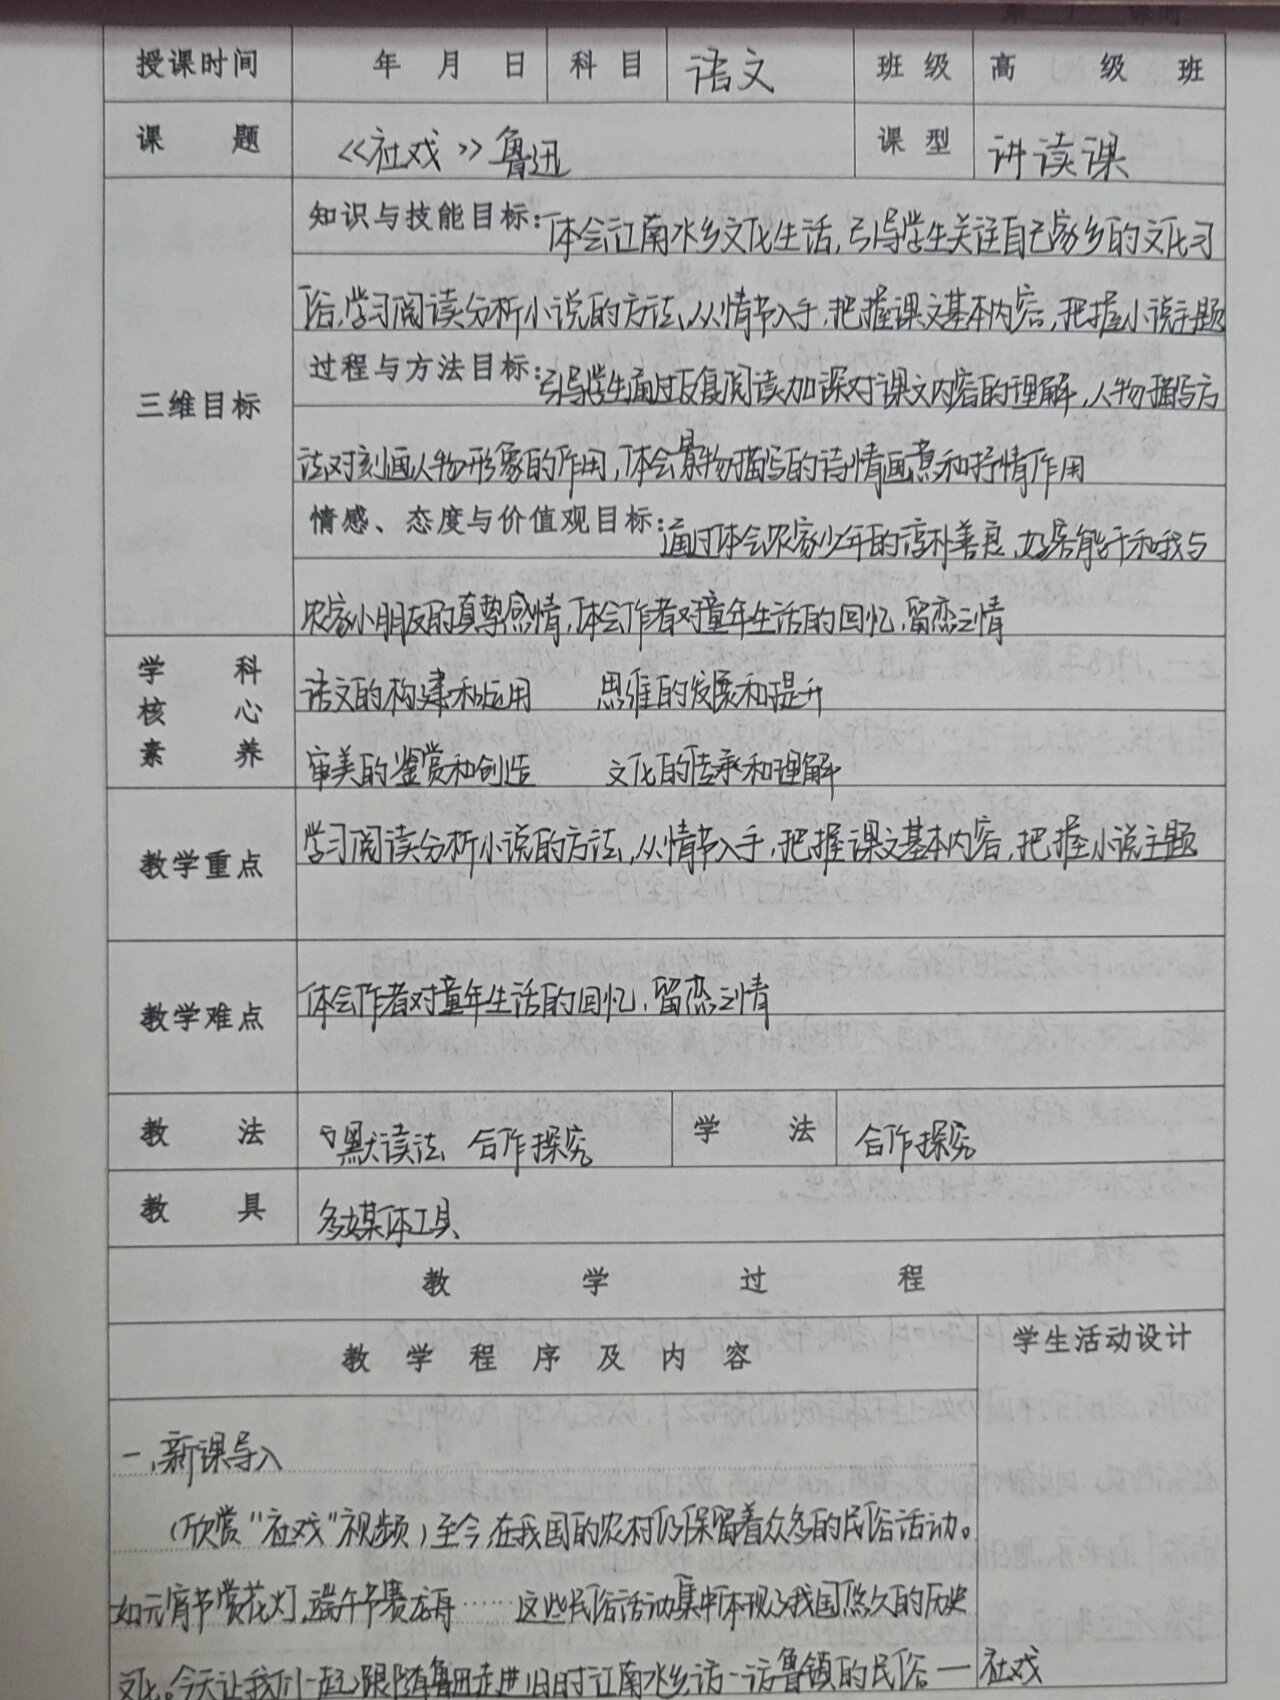 授课时间 年 月 日 科目 语文 班级 高 级 班
课 题 《社戏》鲁迅 课型 讲读课
知识与技能目标：体会江南水乡文化生活，引导学生关注自己家乡的文化习
俗，学习阅读分析小说的方法，从情节入手，把握课文基本内容，把握小说主题
三维目标
过程与方法目标：引导学生通过反复阅读加深对课文内容的理解，人物描写方
法对刻画人物形象的作用，体会景物描写的诗情画意和抒情作用
情感、态度与价值观目标：通过体会农家少年的淳朴善良，好客能干和我与
农家小朋友的真挚感情，体会作者对童年生活的回忆，留恋之情
学 科
核 心
素 养
语文的构建和运用 思维的发展和提升
审美的鉴赏和创造 文化的传承和理解
教学重点 学习阅读分析小说的方法，从情节入手，把握课文基本内容，把握小说主题
教学难点 体会作者对童年生活的回忆，留恋之情
教 法 默读法 合作探究 学 法 合作探究
教 具 多媒体工具
教 学 过 程
教 学 程 序 及 内 容 学生活动设计
一、新课导入
（欣赏“社戏”视频）至今在我国的农村仍保留着众多的民俗活动。
如元宵节赏花灯，端午节赛龙舟……这些民俗活动集中体现了我国悠久的历史
文化。今天让我们一起跟随鲁迅走进旧时江南水乡，访一访鲁镇的民俗——社戏